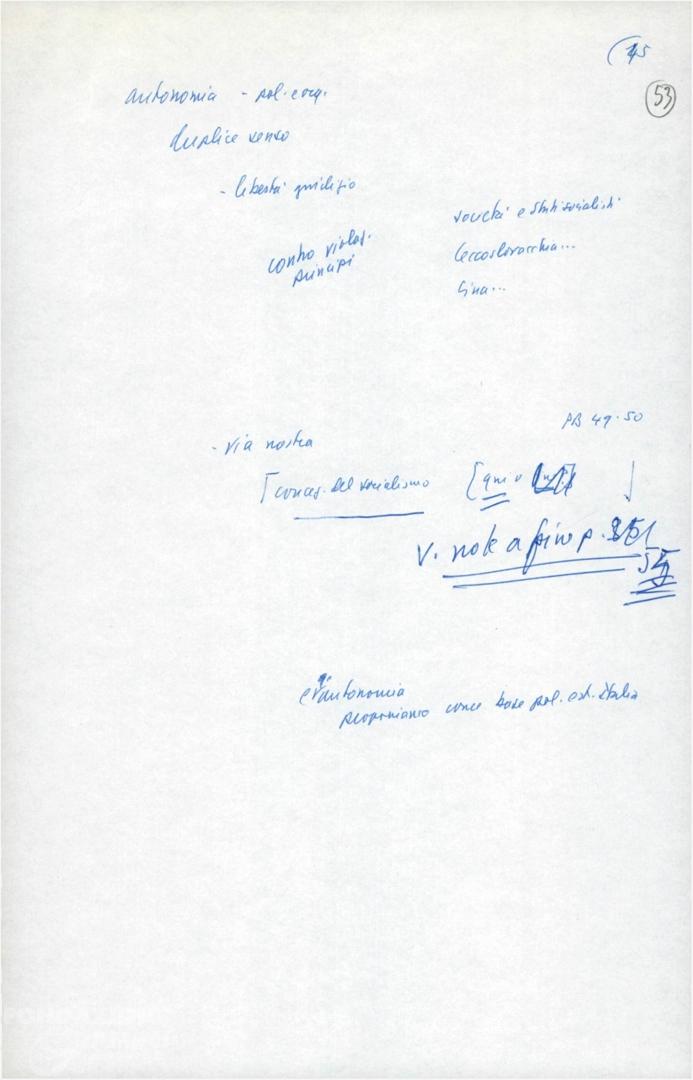 45
53
autonomia -
duplice senso
- libertà giudizio
contro violaz.
principi
e Stati socialisti
Cecoslovacchia...
Cina...
PB 49-50
- via nostra
[concez. del socialismo
V. note a fino p.
è autonomia
proponiamo come base pol. est. Italia